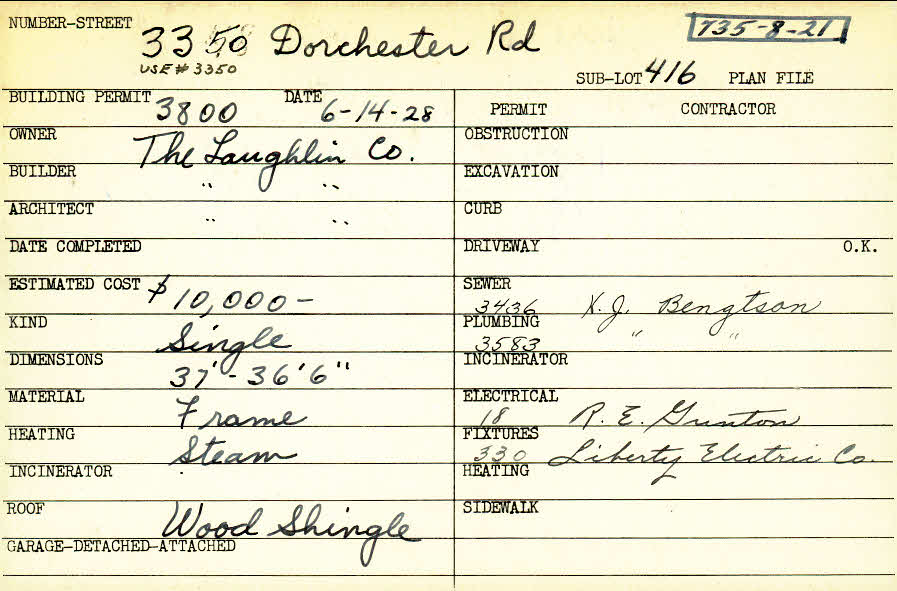 NUMBER-STREET 3350 Dorchester Rd 735-8-21
USE # 3350
SUB-LOT 416 PLAN FILE
BUILDING PERMIT 3800 DATE 6-14-28
PERMIT CONTRACTOR
OWNER The Laughlin Co.
OBSTRUCTION
BUILDER " "
EXCAVATION
ARCHITECT " "
CURB
DATE COMPLETED
DRIVEWAY O.K.
ESTIMATED COST $10,000-
SEWER 3436 K.J. Bengtson
KIND Single
PLUMBING 3583 " "
DIMENSIONS 37'-36'6"
INCINERATOR
MATERIAL Frame
ELECTRICAL 18 R. E. Gunton
HEATING Steam
FIXTURES 330 Liberty Electric Co.
INCINERATOR
HEATING
ROOF Wood Shingle
SIDEWALK
GARAGE-DETACHED-ATTACHED